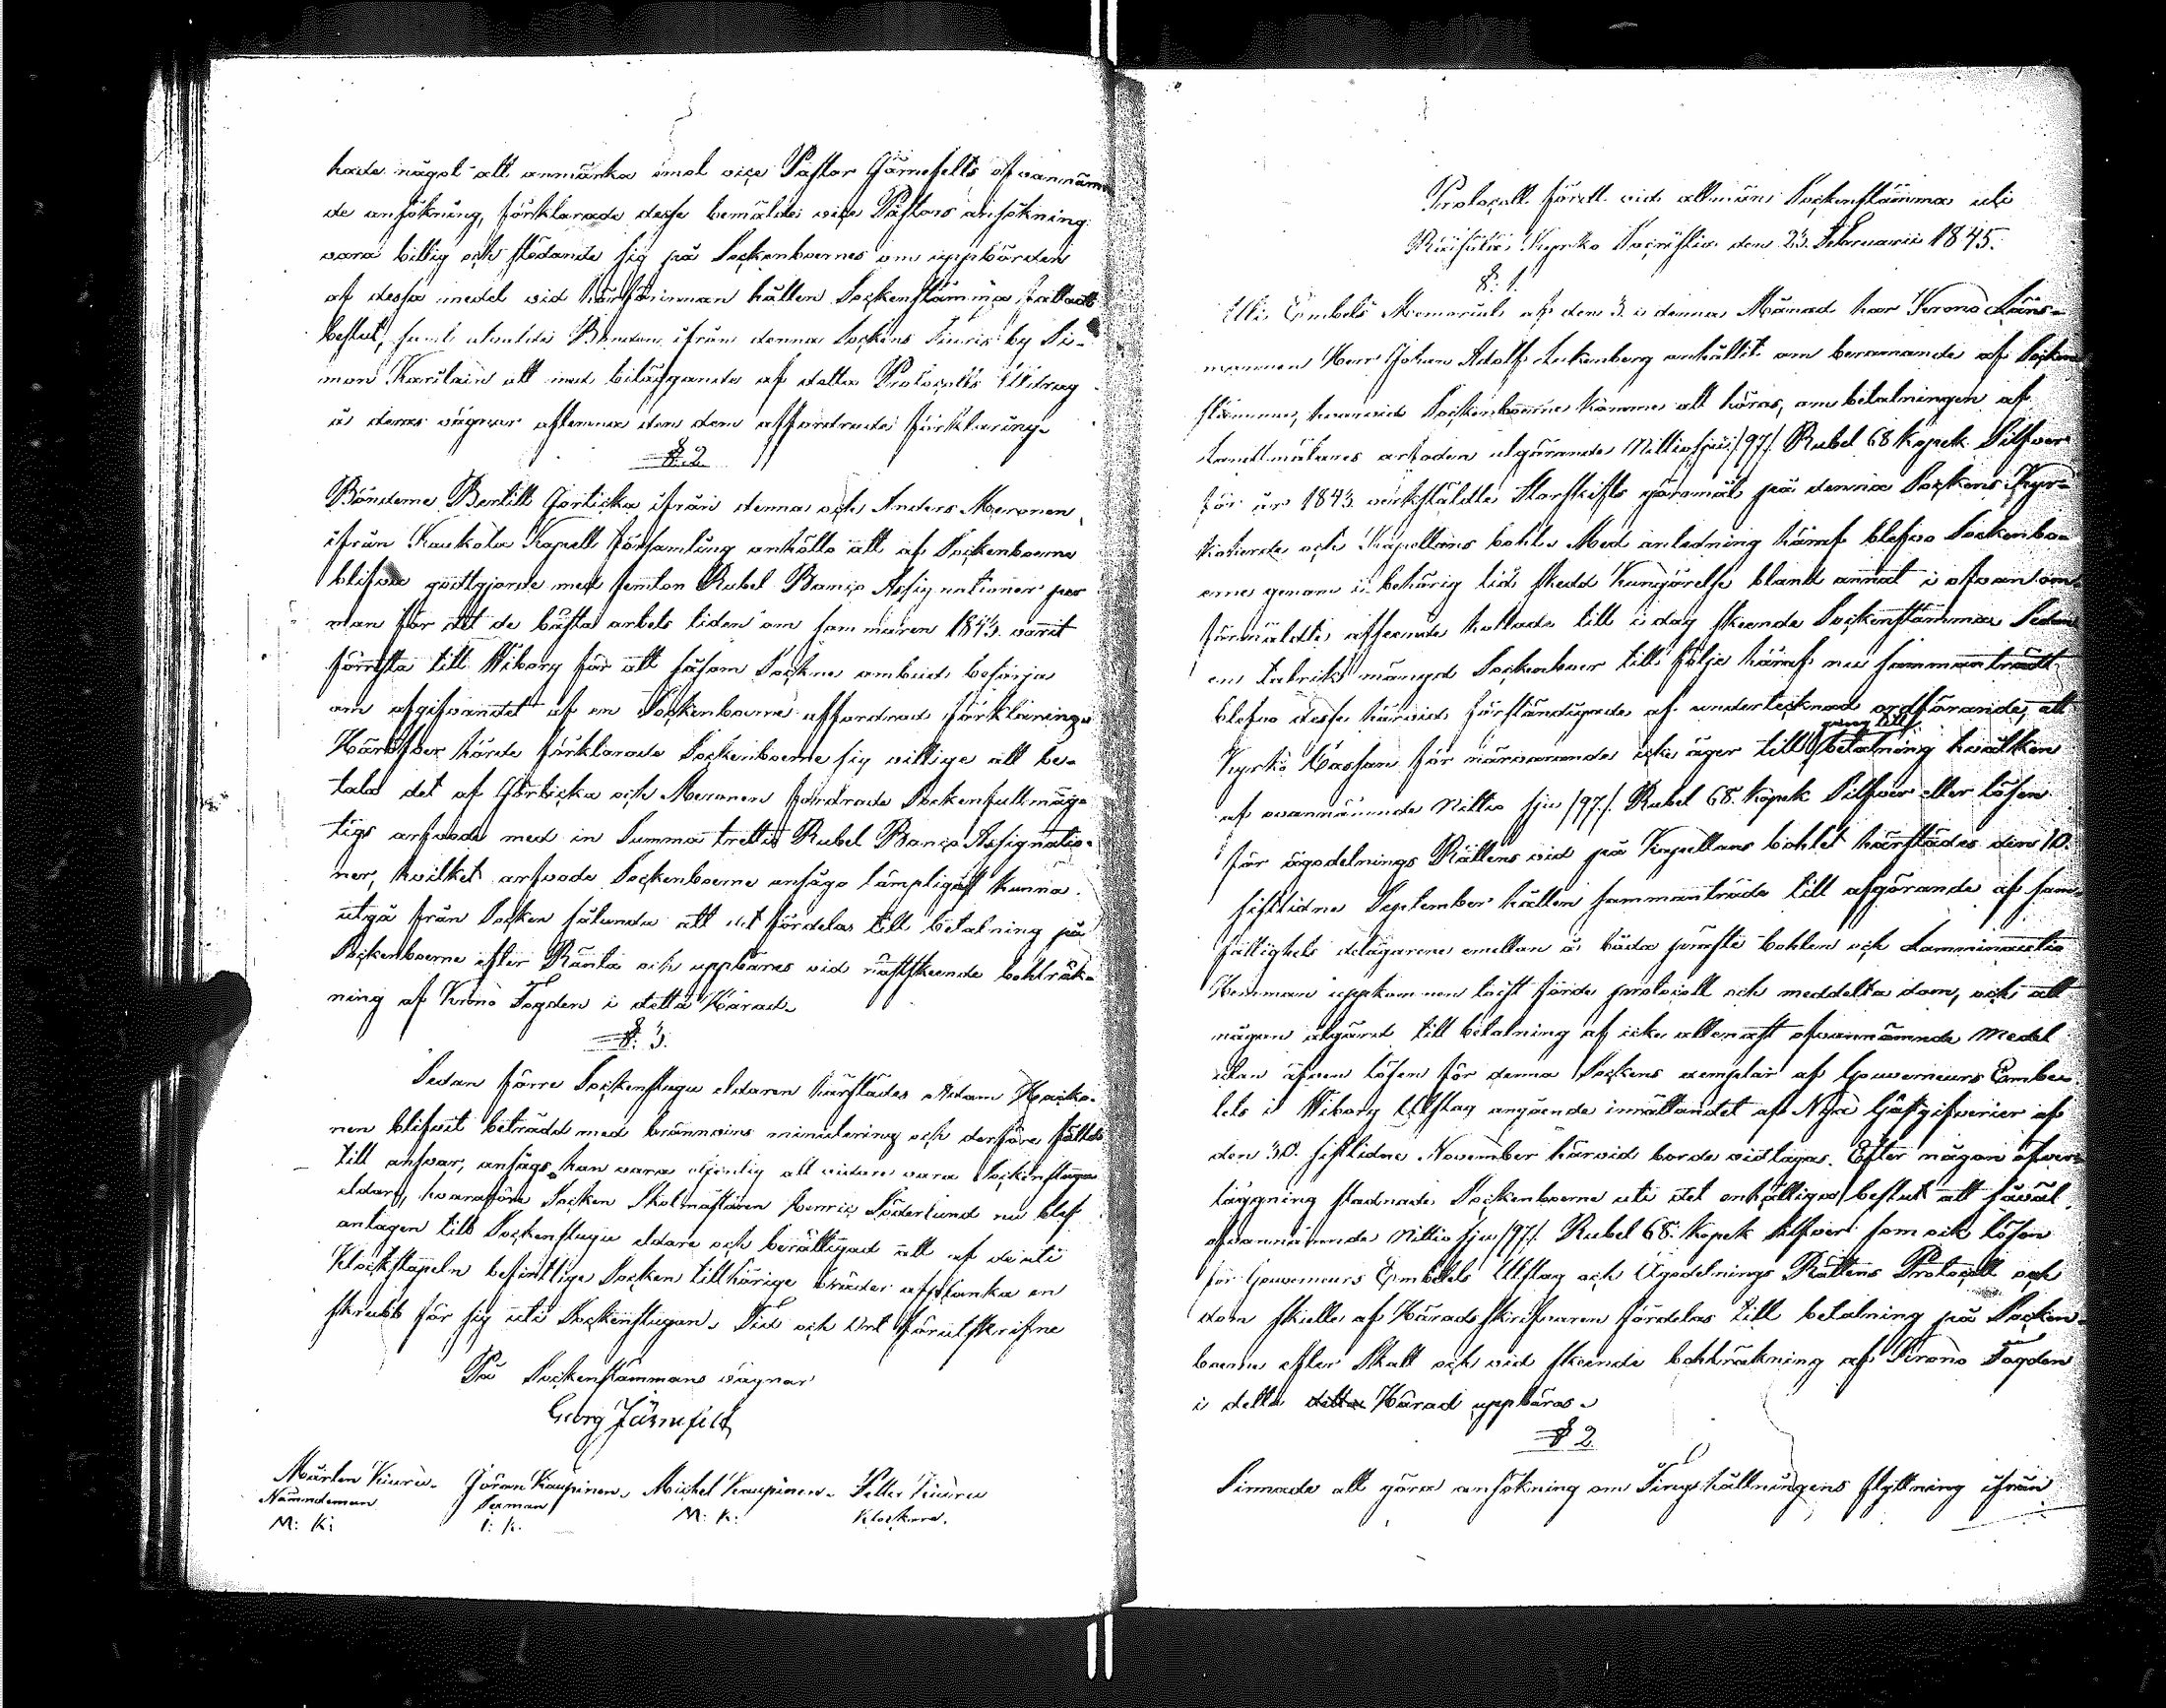 hade något att anmärka emot vice Pastor Järnefelts ofvannämn
de ansökning, förklarade desse bemälde vice Pastors ansökning
vara billig och stödande sig på Sockenboernes om uppbörden
af dessa medel vid härförinnan hållen Sockenstämma fattadt
beslut, samt utvalde Bonden ifrån denna Sockens by Si-
mon Karilain att med biläggande af detta Protocolls Utdrag
å deras vägnar aflemna den dem affordrade förklaring.
§. 2.
Bönderne Bertill Jortikka ifrån denna och Anders Meronen
ifrån Kaukola Kapell Församling anhöllo att af Sockenboerne
blifva godtgjorde med femton Rubel Banco Assignationer per
man för det de bästa arbets tiden om sommaren 1843 varit
förresta till Wiborg för att såsom Sockne ombud besörja
om afgifvandet af en Sockenboerne affordrad förklaring.
Häröfver hörde förklarade Sockenboerne sig villige att be-
tala det af Jortikka och Meronen fordrade Sockenfullmäg-
tigs arfvode med in Summa trettio Rubel Banco Assignatio-
ner, hvilket arfvode Sockenboerne ansågo lämpligast kunna
utgå från Socken sålunda att det fördelas till betalning på
Sockenboerne efter Ränta och uppbäres vid nästskeende bohlräk-
ning af Krono Fogden i detta Härad.
§. 3.
Sedan förre Sockenstugu eldaren härstädes Adam Hacko-
nen blifvit beträdd med brännvins minutering och derföre fälld
till ansvar, ansågs han vara otjenlig att vidare vara Sockenstugu
eldare, hvarföre Socken Skolmästaren Henric Söderlund nu blef
antagen till Sockenstugu eldare och berättigad att af de uti
Klockstapeln befintlige Socken tillhörige bräder afplanka en
skrubb för sig uti Sockenstugan. Tid och Ort förutskrifne
På Sockenstämmans vägnar
Georg Järnefelt
Mårten Kiuru. Jöran Kaupinen. Michel Kaupinen. Petter Kiuru
Nämndeman Sexman Klockare.
M: K: I: K. M: K:
Protocoll fördt vid allmän Sockenstämma uti
Räisälä Kyrko Sockenstuga den 23 Februarii 1845.
§. 1.
Uti Embets Memorial af den 3 i denna Månad har Krono Läns-
mannen Herr Johan Adolf anhållit om beramande af Socken
stämma, hvarvid Sockenboerne komme att höras, om betalningen af
Landtmätares arfvoden utgörande Nittiosju /97/. Rubel 68 Kopek Silfver
för år 1843 verkstäldte Storskifts göromål på denna Sockens Kyr-
koherde och Kapellans bohl. Med anledning häraf blefvo Sockenbo-
erne genom i behörig tid skedd Kungörelse bland annat i ofvan om-
förmäldte afseende kallade till i dag skeende Sockenstämma. Sedan
en talrik mängd Sockenboer till följe häraf nu sammanträdt
blefvo desse härvid förständigade af undertecknad ordförande, att
Kyrko Cassan för närvarande icke äger till betalning hvarken
af ofvannämnde Nittio sju /97/. Rubel 68. Kopek Silfver eller lösen
för ägodelnings Rättens vid på Kapellans bohlet härstädes den 10.
sistlidne September hållen sammanträde till afgörande af sam-
fällighets delägarene emellan å båda präste bohlen och Lamminautio
Hemman uppkommen tvist förde protocoll och meddelta dom, och att
någon åtgärd till betalning af icke allenast ofvannämnde medel
utan äfven lösen för denna Sockens exemplar af Gouverneurs Embe-
tets i Wiborg Utslag angående inrättandet af Nya Gästgifverier af
den 30. sistlidne November härvid borde vidtagas. Efter någon öfver-
läggning stadnade Sockenboerne uti det enhälliga beslut att såväl
ofvannämnde Nittio sju /97/. Rubel 68. Kopek Silfver som ock lösen
för Gouverneurs Embetets Utslag och Ägodelnings Rättens Protocoll och
dom skulle af Häradsskrifvaren fördelas till betalning på Socken-
boerne efter Skatt och vid skeende bohlräkning af Krono Fogden
i detta Härad uppbäras.
§ 2.
Sinnade att göra ansökning om Tings hållningens flyttning ifrån